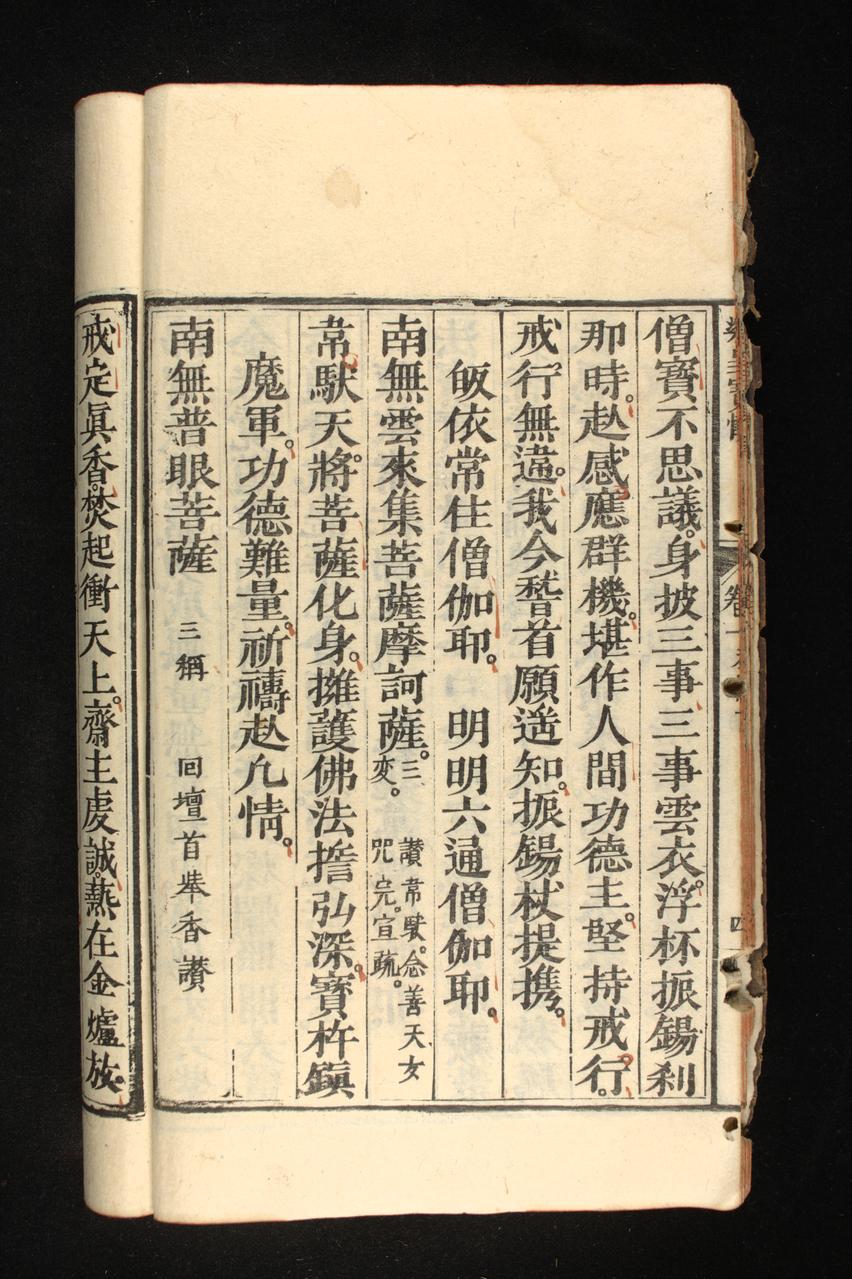 僧寶不思議。身披三事三事雲衣。浮杯振錫刹
那時。赴感應群機。堪作人間功德主。堅持戒行。
戒行無違。我今稽首願遥知。振錫杖提携。
皈依常住僧伽耶。 明明六通僧伽耶。
南無雲來集菩薩摩訶薩。三変。 讃韋馱。念善天女咒完。宣疏。
韋馱天將。菩薩化身。擁護佛法誓弘深。寶杵鎭
魔軍。功德難量。祈禱赴凢情。
南無普眼菩薩 三稱 回壇首舉香讃
戒定眞香。焚起衝天上。齋主虔誠。爇在金爐放。